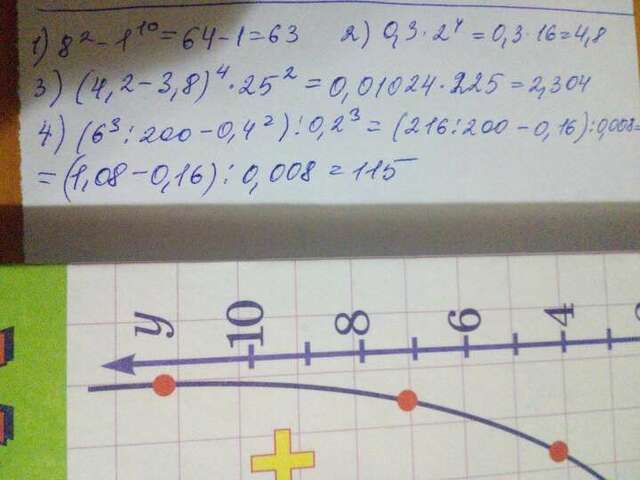 1) 8² - 1¹⁰ = 64 - 1 = 63 2) 0,3 · 2⁴ = 0,3 · 16 = 4,8
3) (4,2 - 3,8)⁴ · 25² = 0,01024 · 225 = 2,304
4) (6³ : 200 - 0,4²) : 0,2³ = (216 : 200 - 0,16) : 0,008 =
= (1,08 - 0,16) : 0,008 = 115
y 10 8 6 4